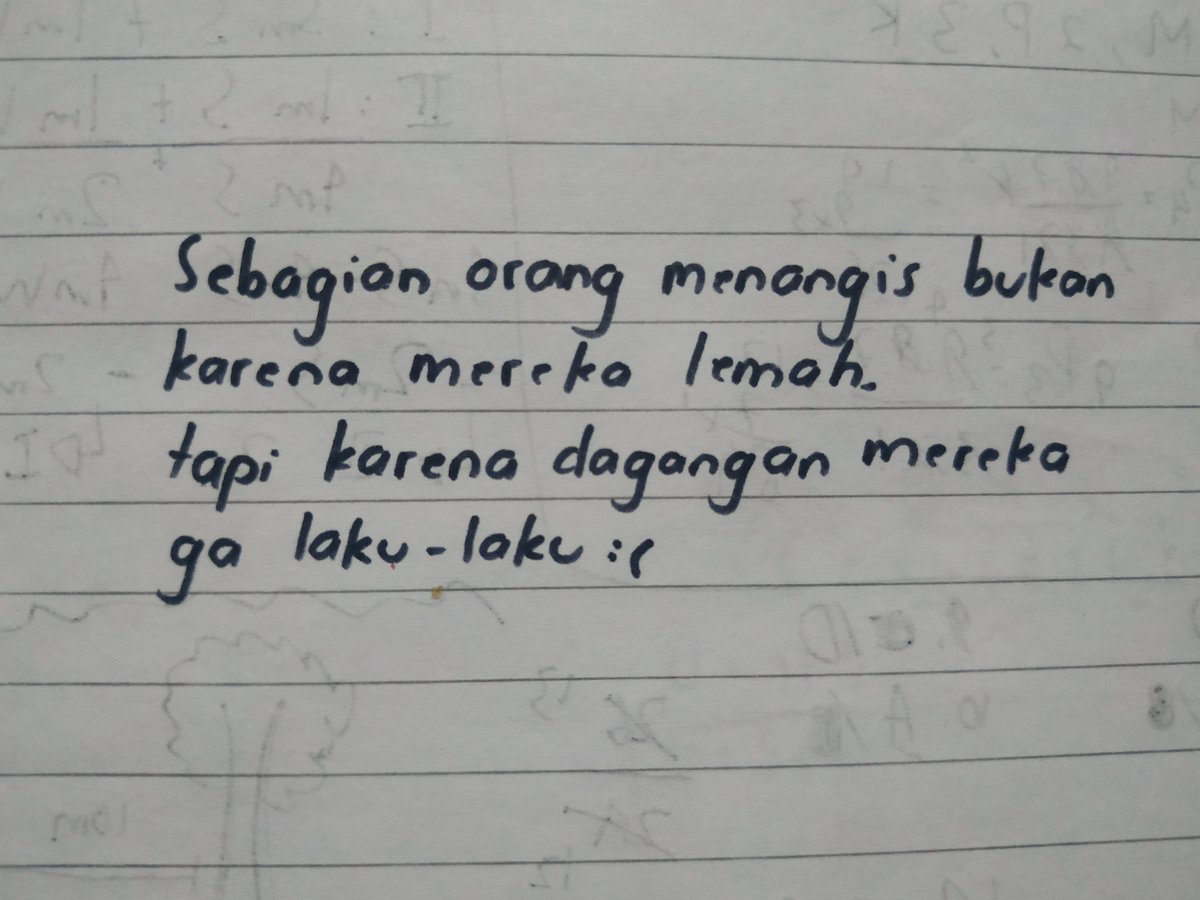 Sebagian orang menangis bukan
karena mereka lemah.
tapi karena dagangan mereka
ga laku-laku :(